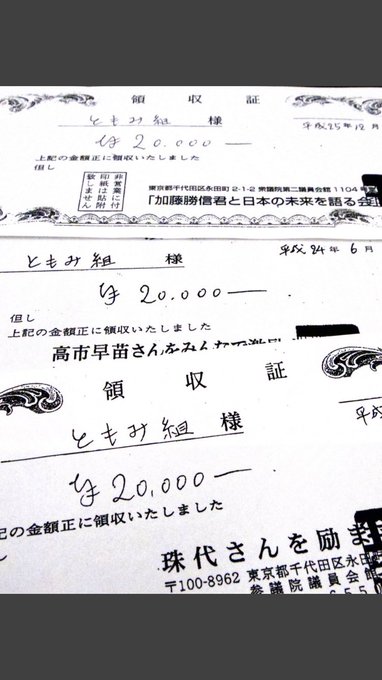 領収証
ともみ組 様
平成25年12月
¥20.000—
上記の金額正に領収いたしました
但し
非営業に付
印紙は貼附
致しません
東京都千代田区永田町2-1-2 衆議院第二議員会館1104号室
「加藤勝信君と日本の未来を語る会」
平成24年6月
ともみ組 様
¥20.000—
但し
上記の金額正に領収いたしました
高市早苗さんをみんなで激励
領収証
ともみ組 様
平成
¥20,000—
記の金額正に領収いたしました
し
珠代さんを励ま
〒100-8962 東京都千代田区永田
参議院議員会館